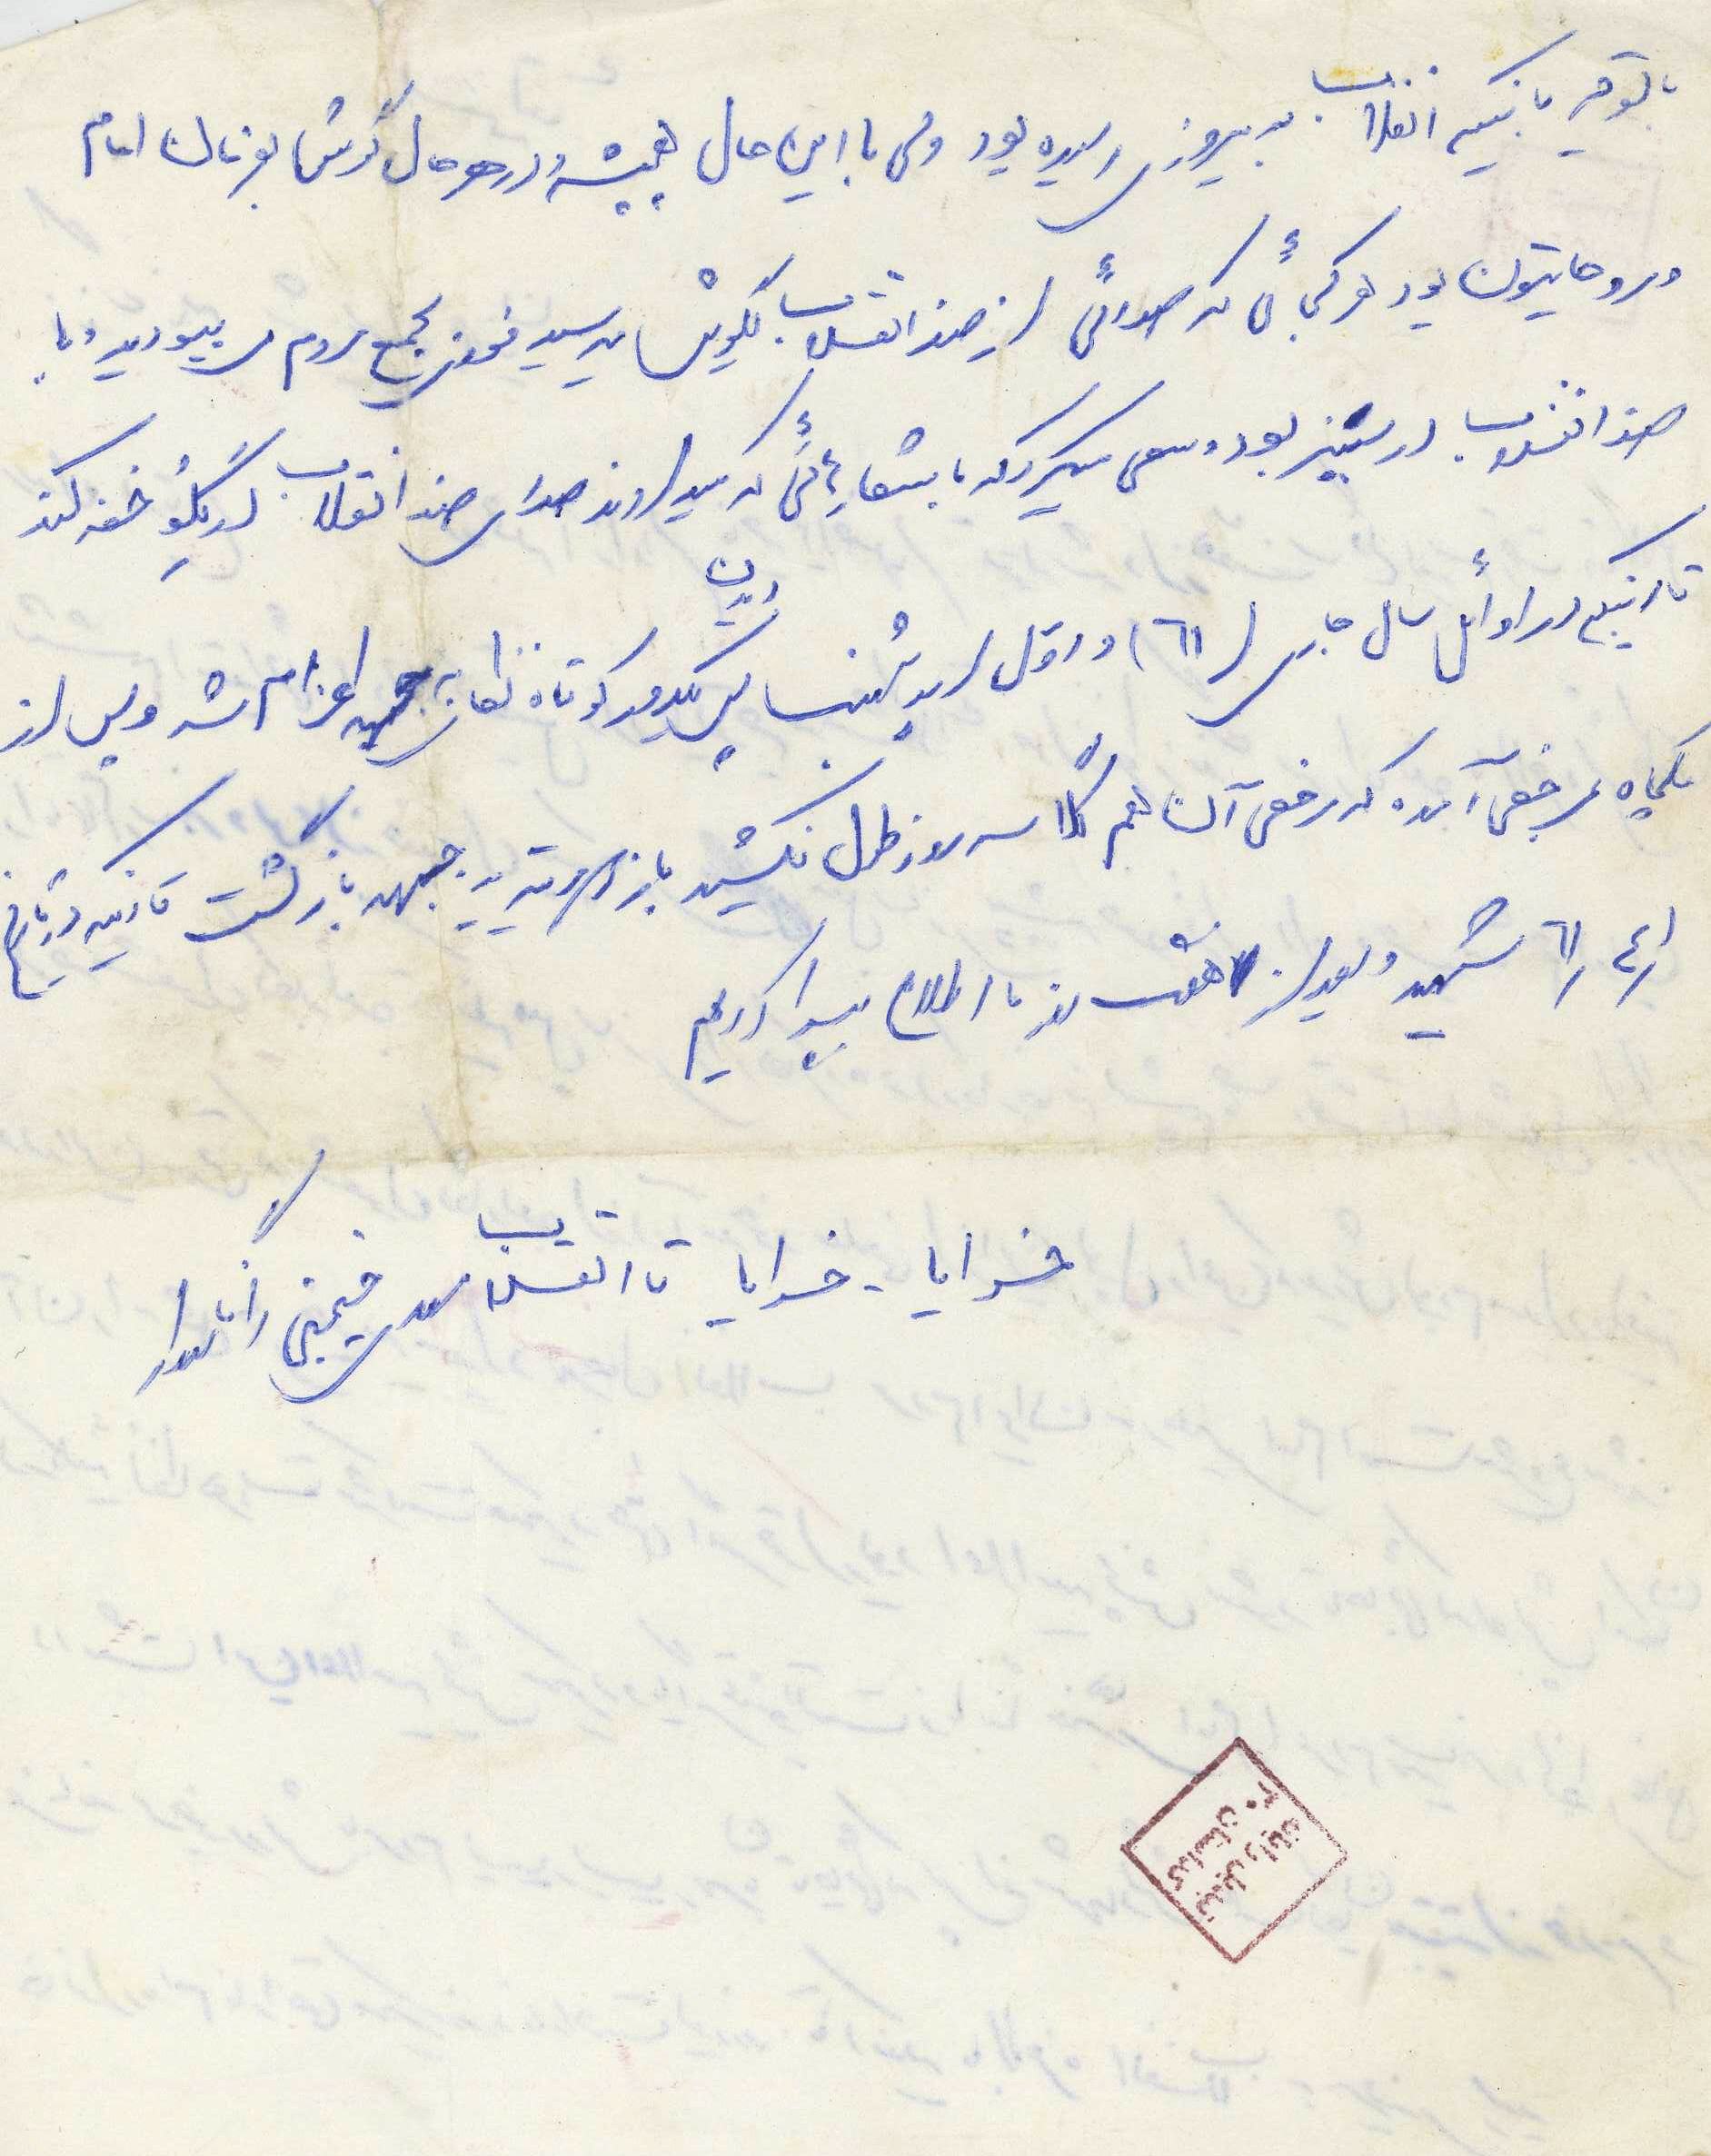 با توجه باینکه انقلاب به پیروزی رسیده بود ولی با این حال همیشه و در هر حال گوش بفرمان امام
و روحانیون بود هر کجائی که صدائی از ضد انقلاب بگوش میرسید فوری بجمع مردم می پیوندید و با
ضد انقلاب در ستیز بود و سعی میکرد که با شعارهائی که میدادند صدای ضد انقلاب در گلو خفه کند
تا اینکه در اوائل سال جاری (٦١) در اول اردیبهشت پس یکدوره کوتاه نظامی دیدن بجبهه اعزام شد و پس از
یکماه مرخصی آمده که مرخصی آن هم سه روز طول نکشید باز به جبهه بازگشت تا اینکه در تاریخ
٦١/٤/١ شهید و بعد از هفت روز ما اطلاع پیدا کردیم
خدایا - خدایا تا انقلاب مهدی خمینی را نگهدار
تبادل راویان
داستان ٢٠